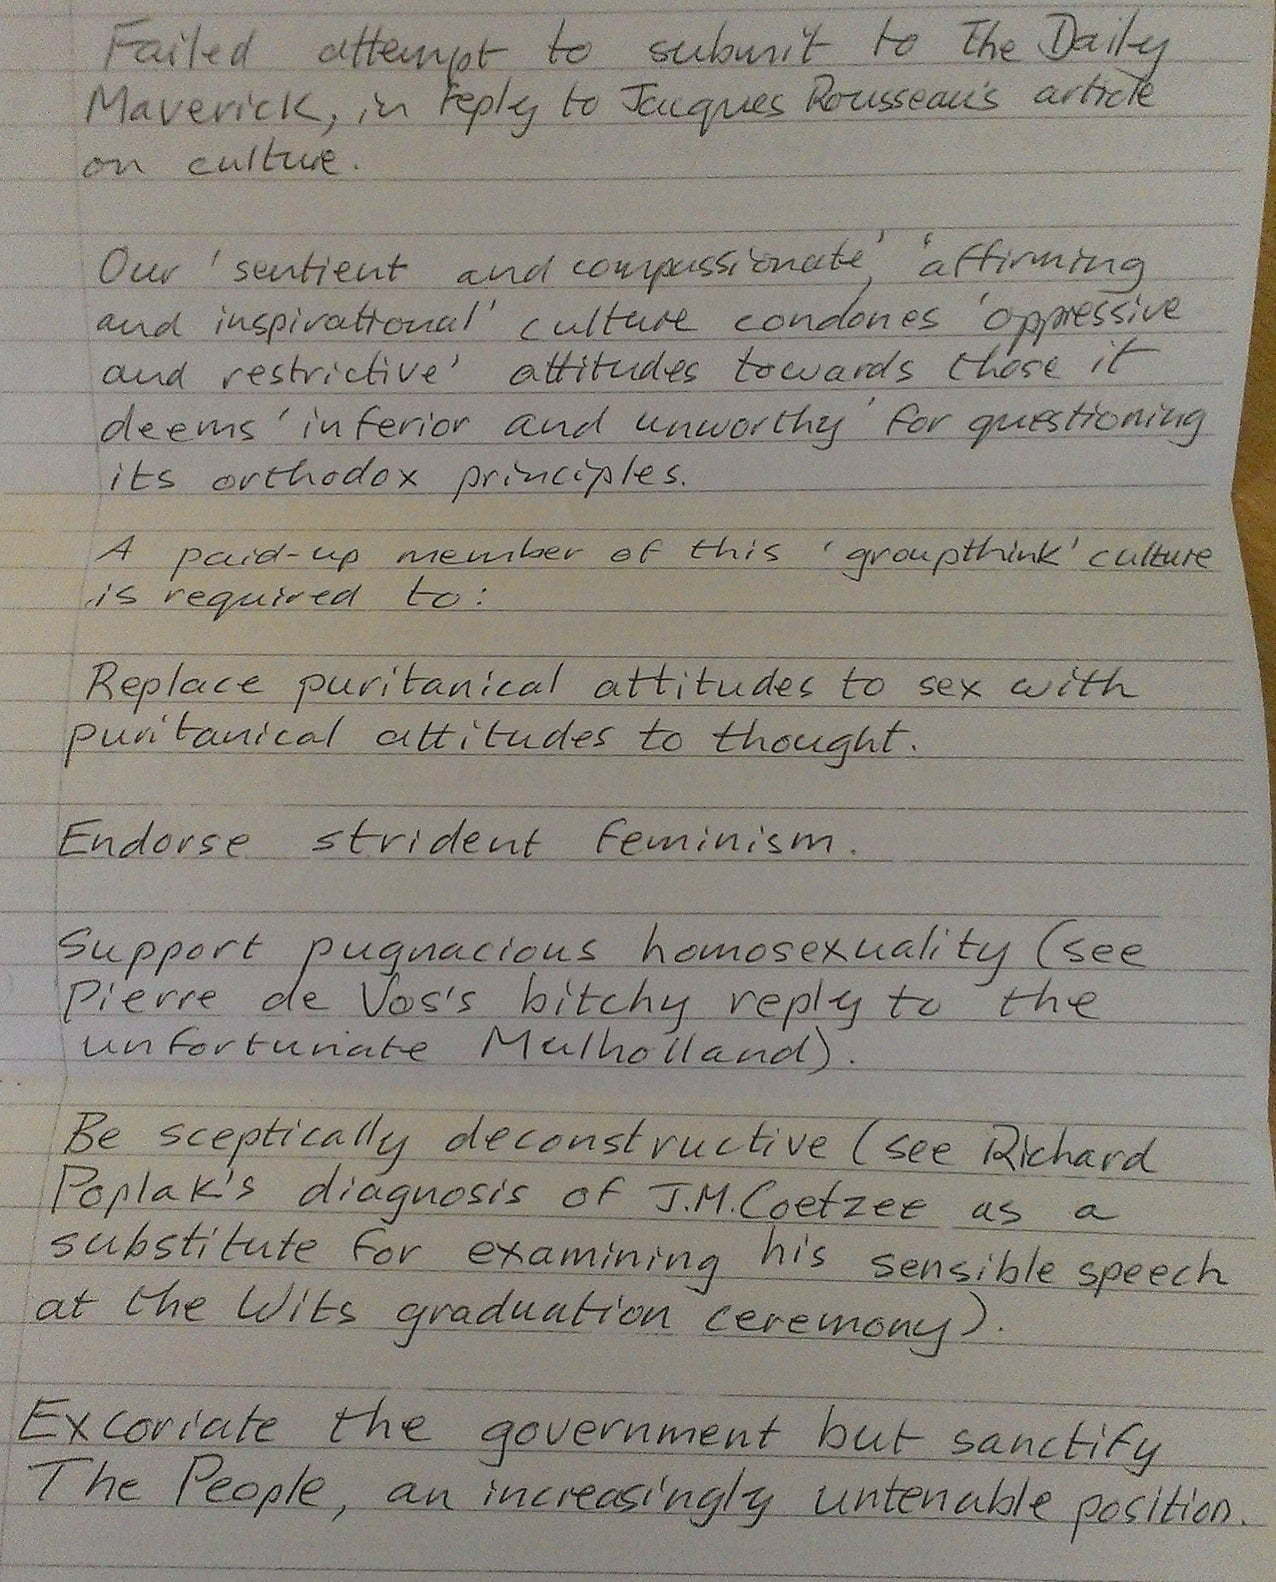 Failed attempt to submit to The Daily
Maverick, in reply to Jacques Rousseau's article
on culture.
Our 'sentient and compassionate', 'affirming
and inspirational' culture condones 'oppressive
and restrictive' attitudes towards those it
deems 'inferior and unworthy' for questioning
its orthodox principles.
A paid-up member of this 'groupthink' culture
is required to:
Replace puritanical attitudes to sex with
puritanical attitudes to thought.
Endorse strident feminism.
Support pugnacious homosexuality (see
Pierre de Vos's bitchy reply to the
unfortunate Mulholland).
Be sceptically deconstructive (see Richard
Poplak's diagnosis of J.M. Coetzee as a
substitute for examining his sensible speech
at the Wits graduation ceremony).
Excoriate the government but sanctify
The People, an increasingly untenable position.